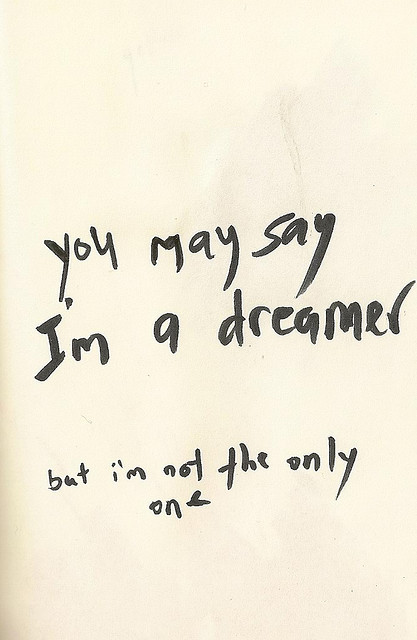 you may say
I'm a dreamer
but i'm not the only
one